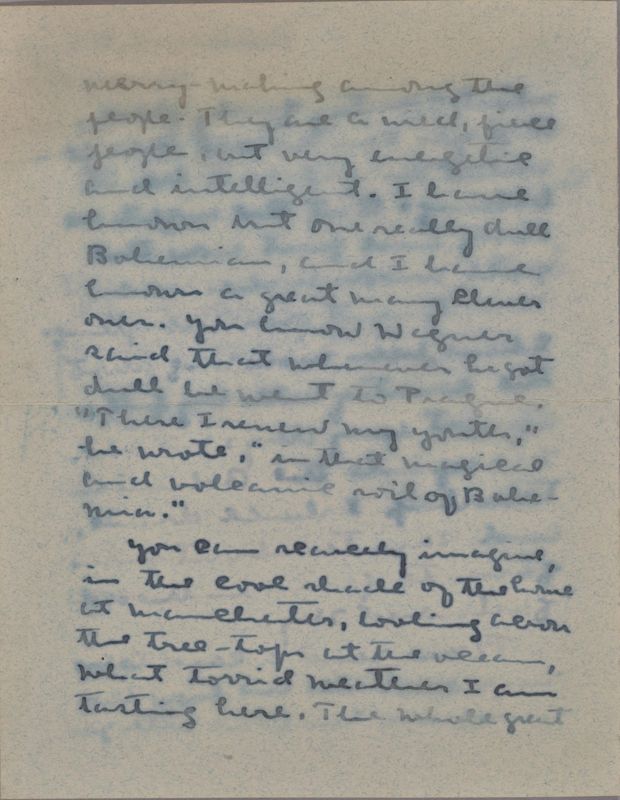 merry-making among the
people. They are a mild, fierce
people, but very energetic
and intelligent. I have
known but one really dull
Bohemian, and I have
known a great many clever
ones. You know Wagner
said that whenever he got
dull he went to Prague.
"There I renew my youth,"
he wrote, "in that magical
and volcanic soil of Bohe-
mia."
You can scarcely imagine,
in the cool shade of the home
at Manchester, looking across
the tree-tops at the ocean,
what torrid weather I am
tasting here. The whole great